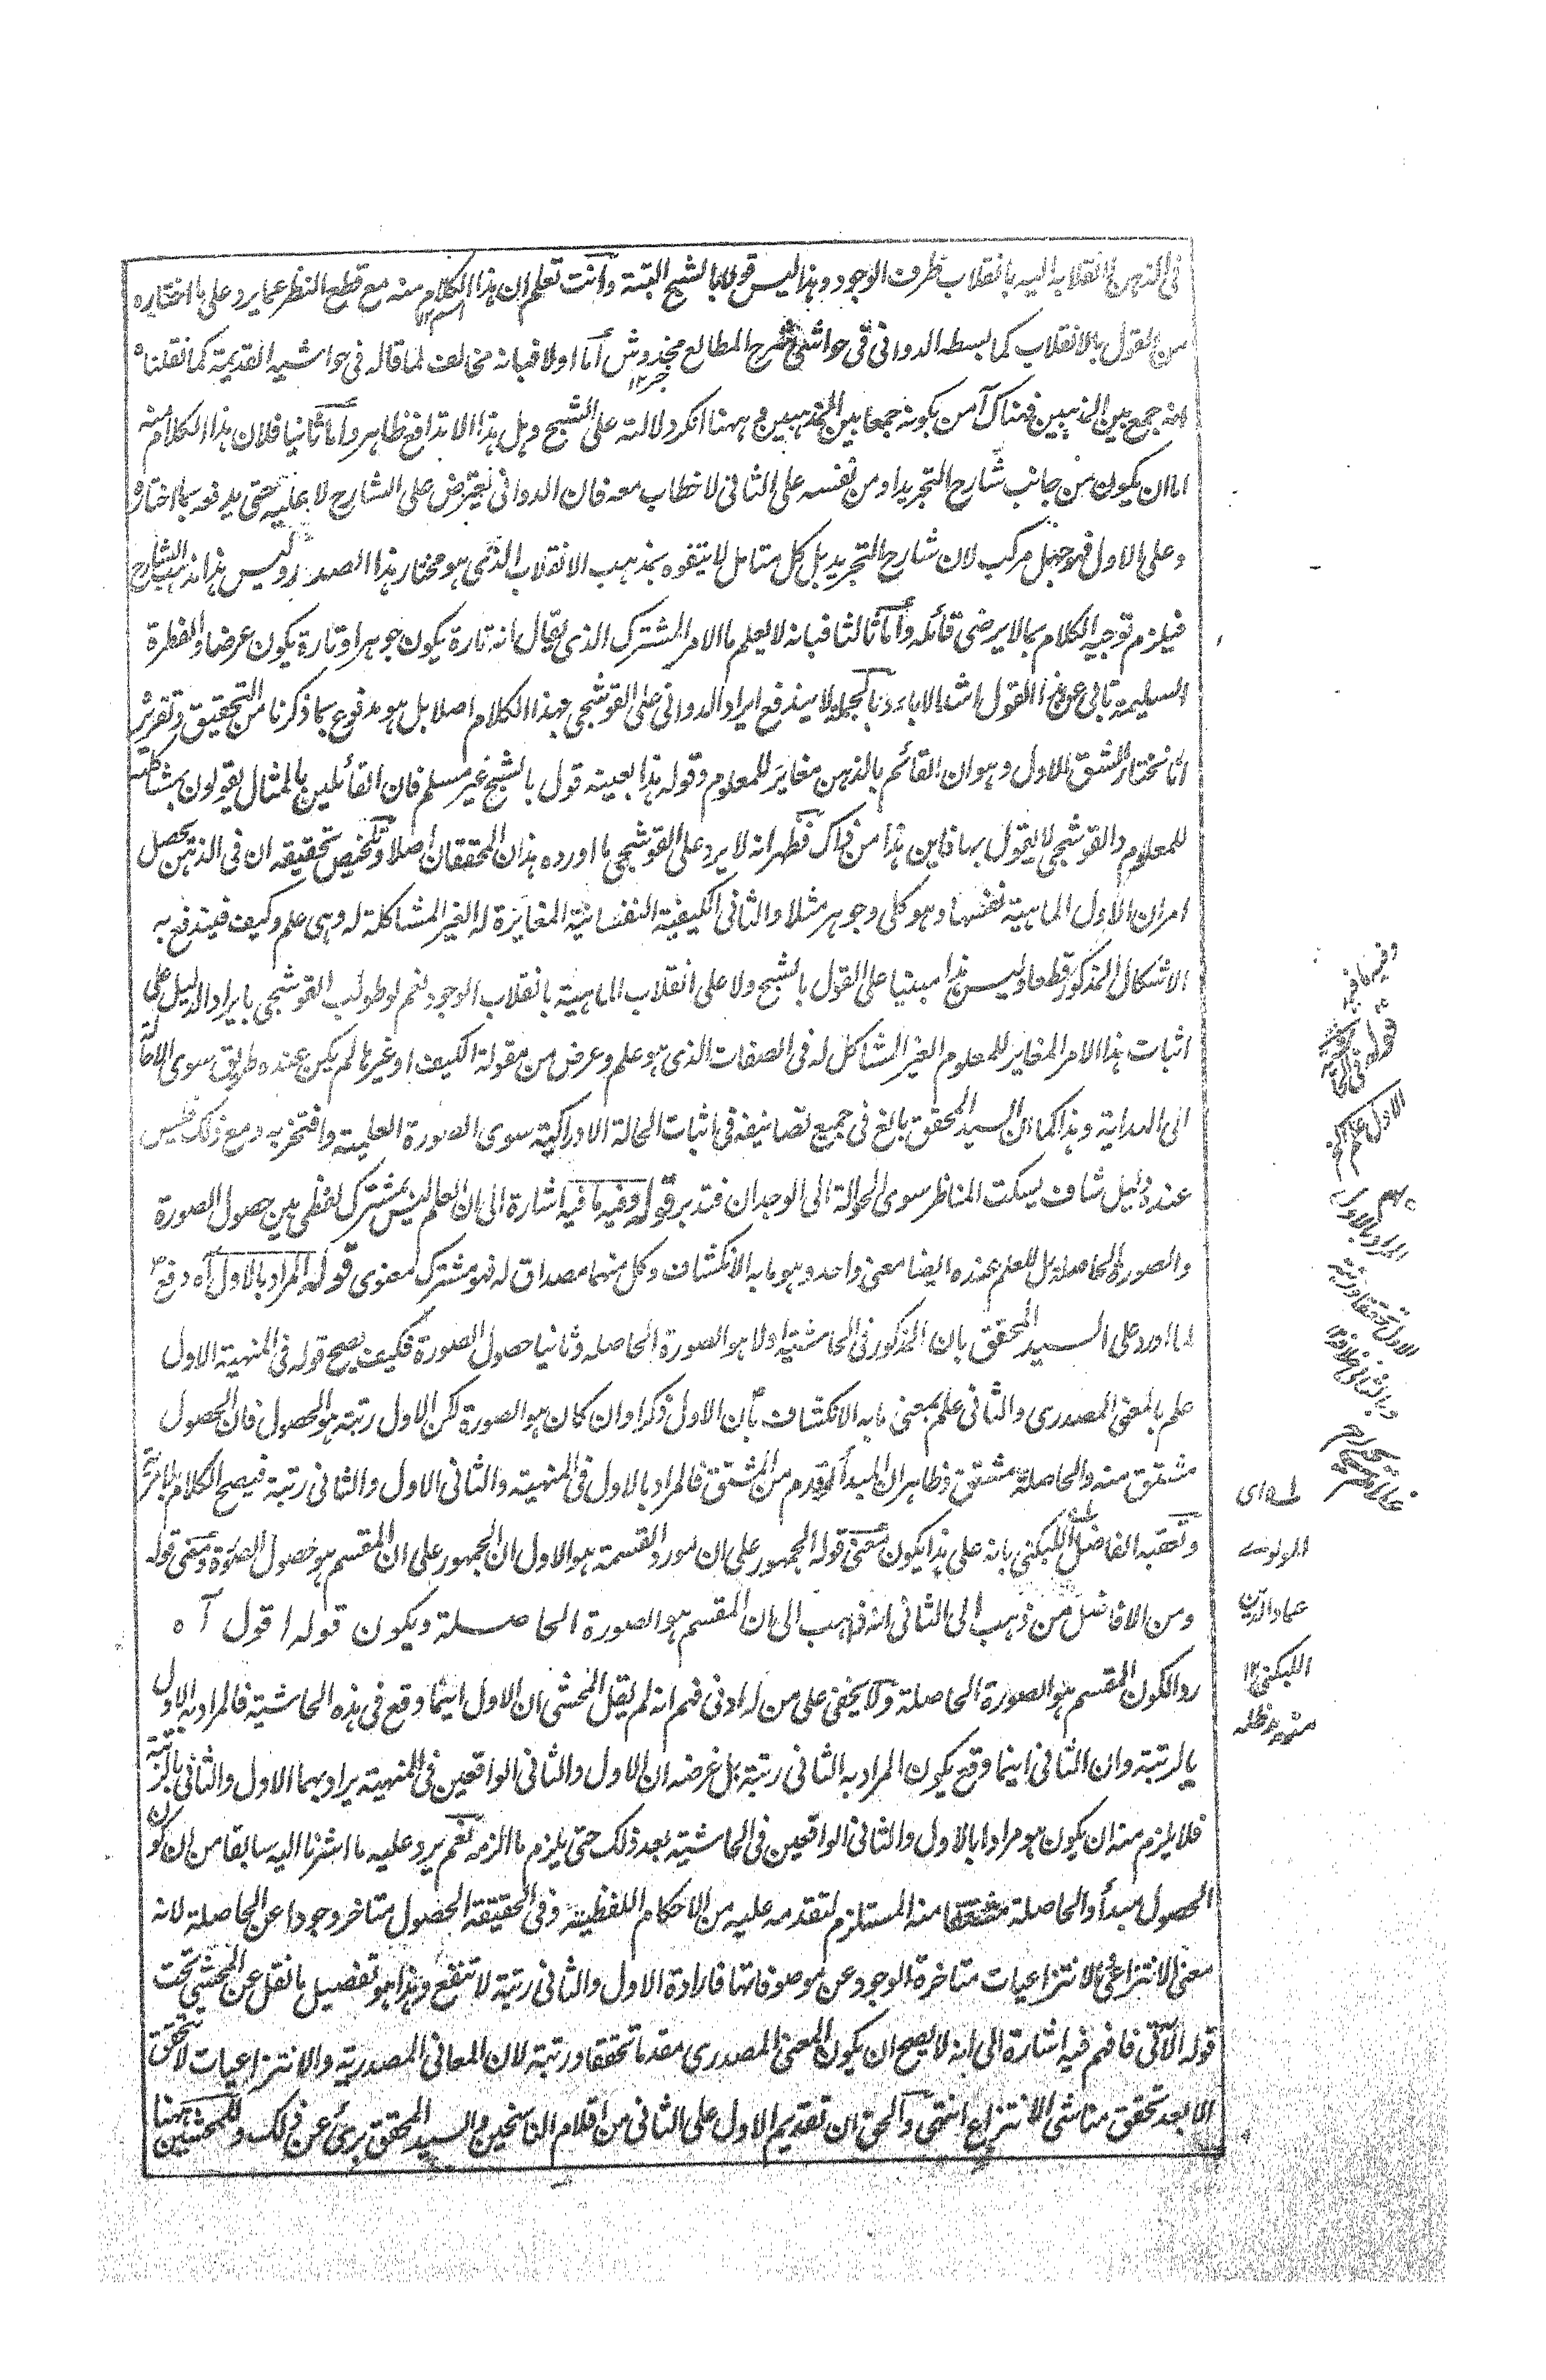 فى الذهن انقلابه اليه بانقلاب ظرف الوجود وهذا ليس قولا بالشبح البتة وانت تعلم ان هذا الكلام منه مع قطع النظر عما يرد على ما اختاره
من القول بالانقلاب كما بسطه الدوانى فى حواشى شرح المطالع مخدوش اما اولا فبانه مخالف لما قاله فى حواشيه القديمة كما نقلنا ه
انه جمع بين المذهبين فهناك آمن بكونه جمعا بين المذهبين وههنا انكر دلالته على الشبح وهل هذا الا تدافع ظاهر واما ثانيا فلان هذا الكلام منه
اما ان يكون من جانب شارح التجريد او من نفسه على الثانى لا خطاب معه فان الدوانى يعترض على الشارح لا عليه حتى يدفعه بما اختاره
وعلى الاول فهو جهل مركب لان شارح التجريد بل كل متامل لا يتفوه بمذهب الانقلاب الذى هو مختار هذا الصدر وليس هذا مذهب الشارح
فيلزم توجيه الكلام بما لا يرضى قائله واما ثالثا فبانه لا يعلم ما الامر المشترك الذى يقال انه تارة يكون جوهرا وتارة يكون عرضا والفطرة
السليمة تابى عن هذا القول اشد الاباء وبالجملة لا يندفع ايراد الدوانى على القوشجى بهذا الكلام اصلا بل هو مدفوع بما ذكرنا من التحقيق وتقريره
انا نختار الشق الاول وهو ان القائم بالذهن مغاير للمعلوم وقوله هذا بعينه قول بالشبح غير مسلم فان القائلين بالمثال يقولون بمشاكلته
للمعلوم والقوشجى لا يقول بها فاين هذا من ذاك فظهر انه لا يرد على القوشجى ما اورده هذان المحققان اصلا وتلخيص تحقيقه ان فى الذهن يحصل
امران الاول الماهية نفسها وهو كلى وجوهر مثلا والثانى الكيفية النفسانية المغايرة له الغير المشاكلة له وهى علم وكيف فيندفع به
الاشكال المذكور قطعا وليس هذا مبنيا على القول بالشبح ولا على انقلاب الماهية بانقلاب الوجود نعم لو طولب القوشجى بايراد الدليل على
اثبات هذا الامر المغاير للمعلوم الغير المشاكل له فى الصفات الذى هو علم وعرض من مقولة الكيف او غيرها لم يكن عنده طريق سوى الاحالة
الى البداهة وهذا كما ان السيد المحقق بالغ فى جميع تصانيفه فى اثبات الحالة الادراكية سوى الصورة العلمية وافتخر به ومع ذلك فليس
عنده دليل شاف يسكت المناظر سوى الحوالة الى الوجدان فتدبر قوله وفيه ما فيه اشارة الى ان العلم ليس بمشترك لفظى بين حصول الصورة
والصورة الحاصلة بل للعلم عنده ايضا معنى واحد وهو ما به الانكشاف وكل منهما مصداق له فهو مشترك معنوى قوله المراد بالاول آه دفع
لما اورد على السيد المحقق بان المذكور فى الحاشية اولا هو الصورة الحاصلة وثانيا حصول الصورة فكيف يصح قوله فى المنهية الاول
علم بالمعنى المصدرى والثانى علم بمعنى ما به الانكشاف بان الاول ذكرا وان كان هو الصورة لكن الاول رتبة هو الحصول فان الحصول
مشتق منه والحاصلة مشتق وظاهر ان المبدأ اقدم من المشتق فالمراد بالاول فى المنهية والثانى الاول والثانى رتبة فيصح الكلام بلا مرية
وتعقبه الفاضل اللبكنى بانه على هذا يكون معنى قوله الجمهور على ان مورد القسمة هو الاول ان الجمهور على ان المقسم هو حصول الصورة ومعنى قوله
ومن الافاضل من ذهب الى الثانى انه ذهب الى ان المقسم هو الصورة الحاصلة ويكون قوله اقول آه
ردا لكون المقسم هو الصورة الحاصلة ولا يخفى على من له ادنى فهم انه لم يقل المحشى ان الاول اينما وقع فى هذه الحاشية فالمراد به الاول
بالرتبة وان الثانى اينما وقع يكون المراد به الثانى رتبة بل غرضه ان الاول والثانى الواقعين فى المنهية يراد بهما الاول والثانى بالرتبة
فلا يلزم منه ان يكون هو مرادا بالاول والثانى الواقعين فى الحاشية بعد ذلك حتى يلزم ما الزمه نعم يرد عليه ما اشرنا اليه سابقا من ان كون
الحصول مبدأ والحاصلة مشتقا منه المستلزم لتقدمه عليه من الاحكام اللفظية وفى الحقيقة الحصول متاخر وجودا عن الحاصلة لانه
معنى الانتزاعى الانتزاعيات متاخرة الوجود عن موصوفاتها فارادة الاول والثانى رتبة لا تنفع وهذا هو تفصيل ما نقل عن المحشى تحت
قوله الآتى فافهم فيه اشارة الى انه لا يصح ان يكون المعنى المصدرى مقدما تحققا ورتبة لان المعانى المصدرية والانتزاعيات لا تتحقق
الا بعد تحقق مناشى الانتزاع انتهى والحق ان تقديم الاول على الثانى من اقلام الناسخين والسيد المحقق برئ عن ذلك وللمحشين ههنا
وفيه ما فيه
قوله فى الحاشية
الاول علم آه
المراد بالاول
الاول تحققا ورتبة
وبالثانى خلافه
له اى
المولوى
عماد الدين
اللبكنى ١٢
منه مد ظله